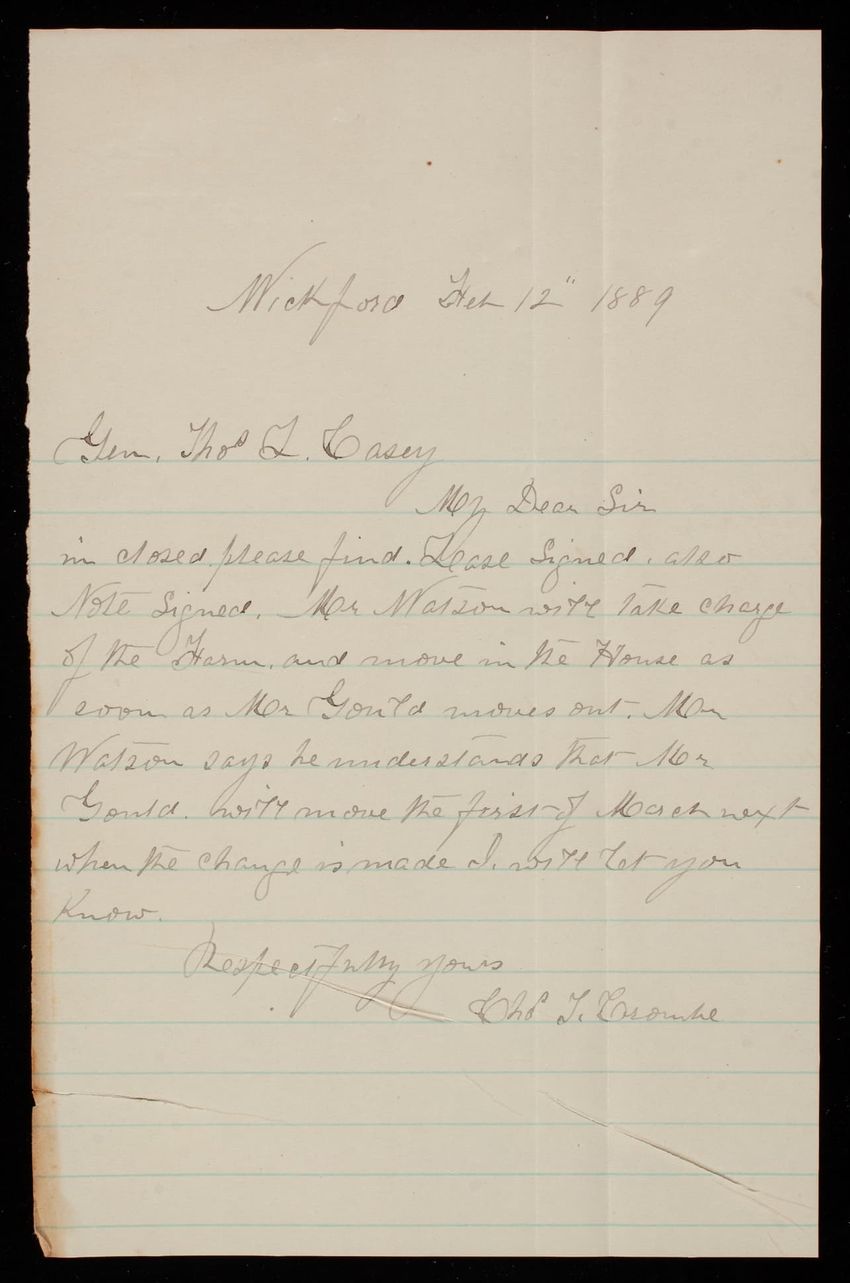 Wickford Feb 12" 1889
Gen. Thos L. Casey
My Dear Sir
in closed please find. Lease Signed. also
Note Signed. Mr Watson will take charge
of the Farm. and move in the House as
soon as Mr Gould moves out. Mr
Watson says he understands that Mr
Gould. will move the first of March next
when the change is made I. will let you
Know.
Respectfully yours
Chs T. Crombe